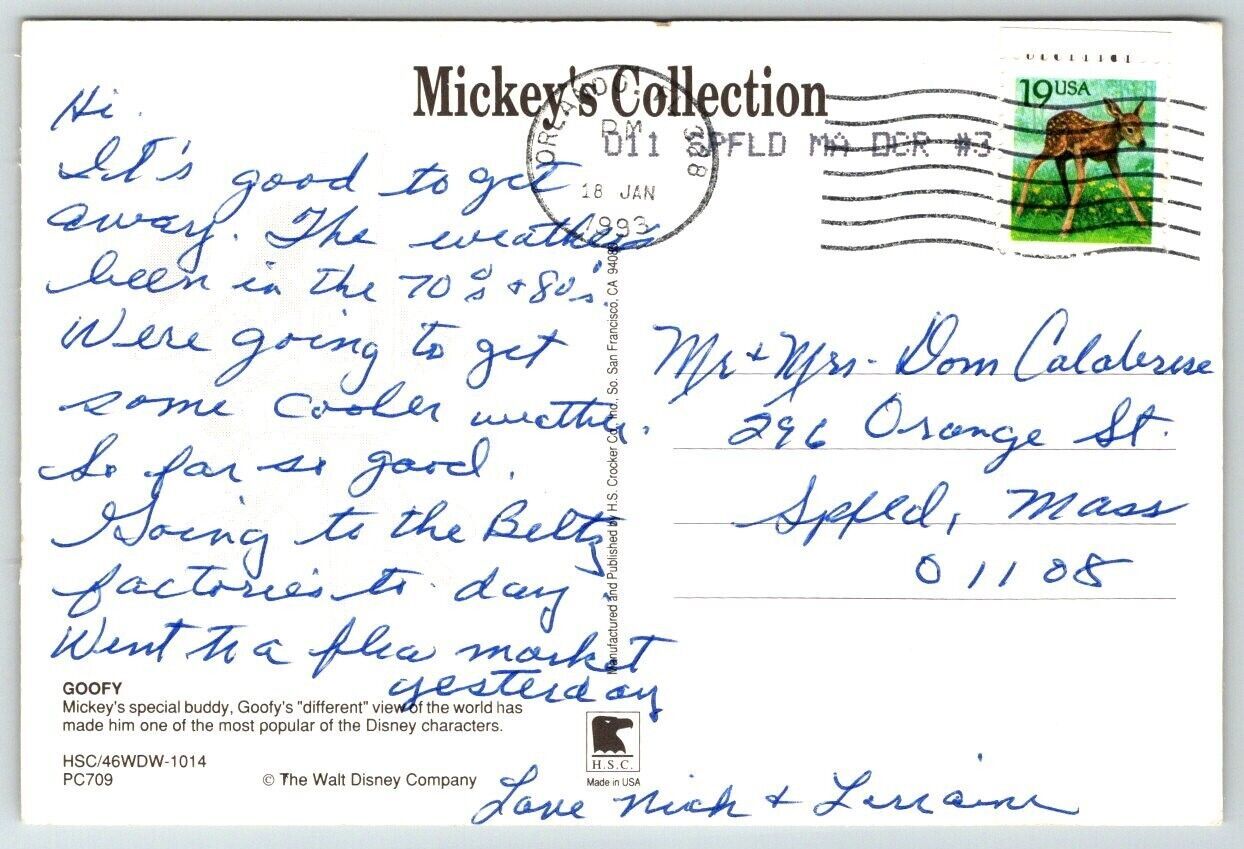 Mickey's Collection
ORLANDO FL 328
PM
18 JAN
1993
011 SPFLD MA DCR #3
19 USA
Hi.
It's good to get
away. The weather's
been in the 70's + 80's.
Were going to get
some cooler weather.
So far so good.
Going to the Beltz
factories to-day.
Went to a flea market
yesterday
Love Nick + Lorraine
Mr + Mrs - Dom Calabrese
296 Orange St.
Spfld, Mass
01108
Manufactured and Published by H.S. Crocker Co., Inc., So. San Francisco, CA 9408
GOOFY
Mickey's special buddy, Goofy's "different" view of the world has
made him one of the most popular of the Disney characters.
HSC/46WDW-1014
PC709
© The Walt Disney Company
H.S.C.
Made in USA